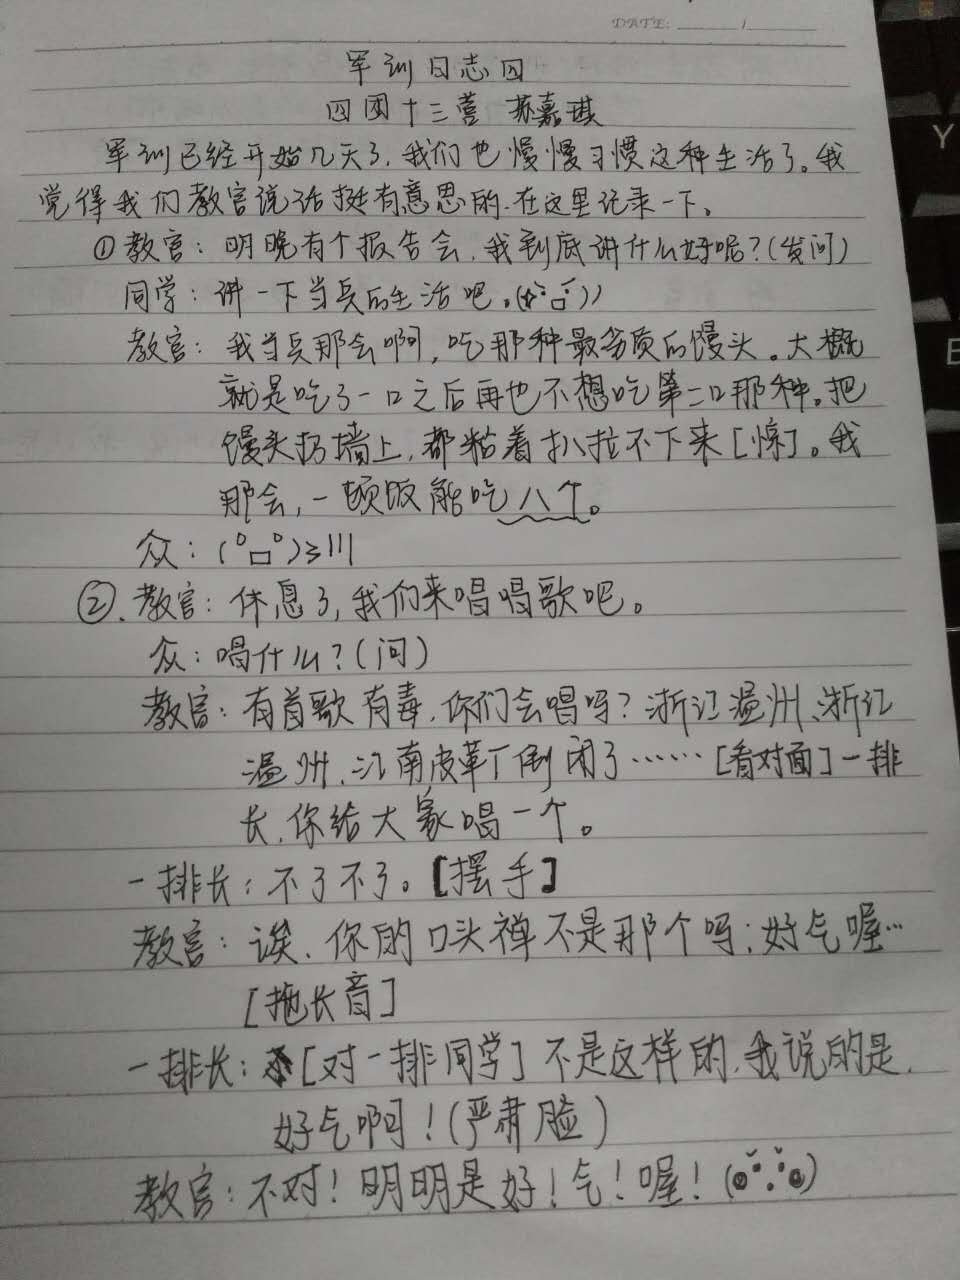 DATE: / 
军训日志四
四团十三营 苏嘉琪
军训已经开始几天了，我们也慢慢习惯这种生活了。我
觉得我们教官说话挺有意思的，在这里记录一下。
① 教官：明晚有个报告会，我到底讲什么好呢？(发问)
同学：讲一下当兵的生活吧。
教官：我当兵那会啊，吃那种最劣质的馒头。大概
就是吃了一口之后再也不想吃第二口那种。把
馒头扔墙上，都粘着扒拉不下来[惊]。我
那会，一顿饭能吃八个。
众：(°口°)≥|||
②. 教官：休息了，我们来唱唱歌吧。
众：唱什么？(问)
教官：有首歌有毒，你们会唱吗？浙江温州、浙江
温州，江南皮革厂倒闭了……[看对面]一排
长，你给大家唱一个。
一排长：不了不了。[摆手]
教官：诶，你的口头禅不是那个吗：好气喔…
[拖长音]
一排长：[对一排同学]不是这样的，我说的是，
好气啊！(严肃脸)
教官：不对！明明是好！气！喔！
Y
E